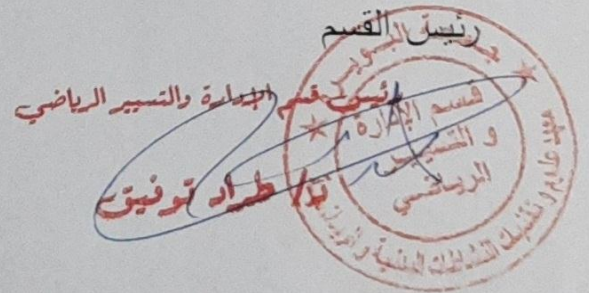 رئيس القسم
رئيس قسم الإدارة والتسيير الرياضي
د/ طراد توفيق
جامعة البويرة
قسم الإدارة
و التسيير
الرياضي
معهد علوم و تقنيات النشاطات البدنية و الرياضية